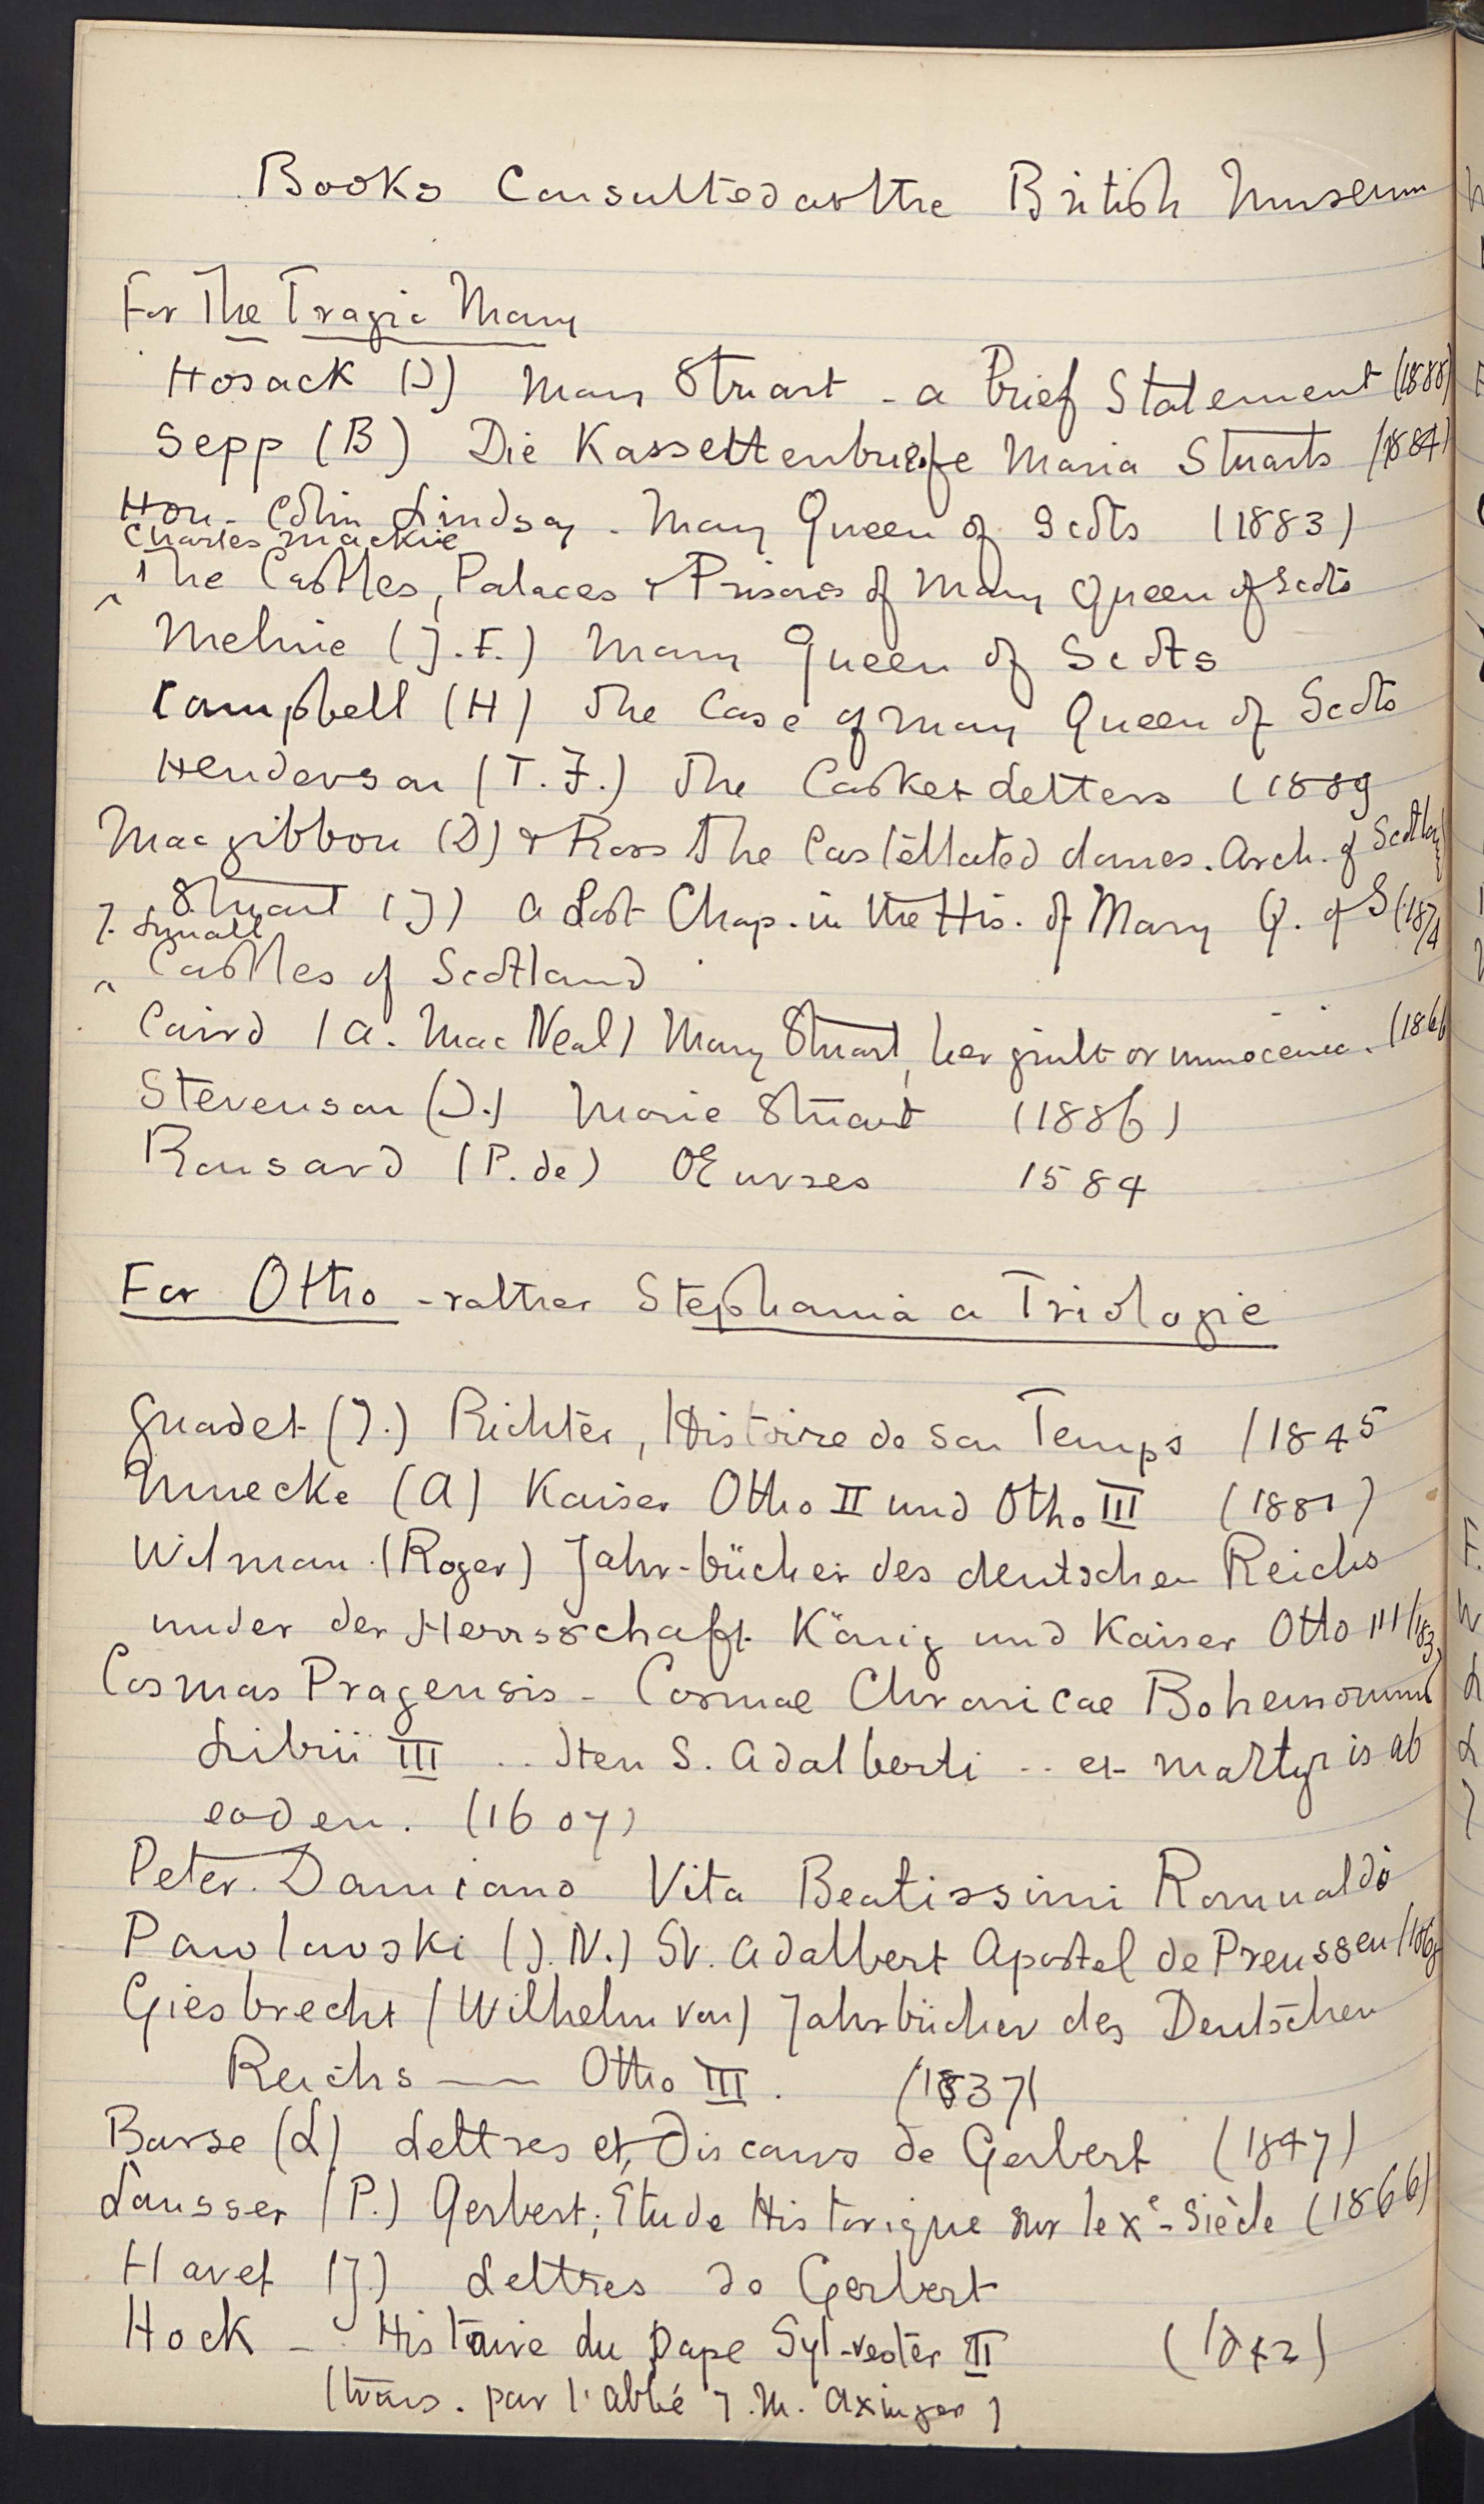 Books Consulted at the British Museum
For The Tragic Mary
Hosack (J) Mary Stuart - a brief Statement (1888)
Sepp (B) Die Kassettenbriefe Maria Stuarts (1884)
Hon. Colin Lindsay - Mary Queen of Scots (1883)
Charles Mackie
^ The Castles, Palaces & Prisons of Mary Queen of Scots
Meline (J.F.) Mary Queen of Scots
Campbell (H) The Case of Mary Queen of Scots
Henderson (T.F.) The Casket Letters (1889
Macgibbon (D) & Ross The Castellated domes. Arch. of Scotland
Stuart (J) A Lost Chap. in the His. of Mary Q. of S (1874
J. Small
^ Castles of Scotland
Caird (A. Mac Neal) Mary Stuart, her guilt or innocence. (1866
Stevenson (J.) Marie Stuart (1886)
Ronsard (P. de) OEuvres 1584
For Otho - rather Stephania a Triologie
Guadet (J.) Richter, Histoire de son Temps (1845
Muecke (A) Kaiser Otho II und Otho III (1881)
Wilman (Roger) Jahr-bücher des deutschen Reichs
under der Herrsschaft König und Kaiser Otto III (183
Cosmas Pragensis - Cosmae Chronicae Bohemorum
Librii III .. Iten S. Adalberti .. et martyris ab
eoden. (1607)
Peter Damiano Vita Beatissimi Romualdo
Pawlowski (J.N.) St. Adalbert Apostel de Preussen (186
Giesbrecht (Wilhelm von) Jahrbücher des Deutschen
Reichs —— Otto III. (1837)
Barse (L) Lettres et Discours de Gerbert (1847)
Lausser (P.) Gerbert; Étude Historique sur le xe - Siècle (1866)
Havet (J.) Lettres de Gerbert
Hock - Histoire du Pape Syl-vester II (1842)
(trans. par l'abbé J.M. Axinger)